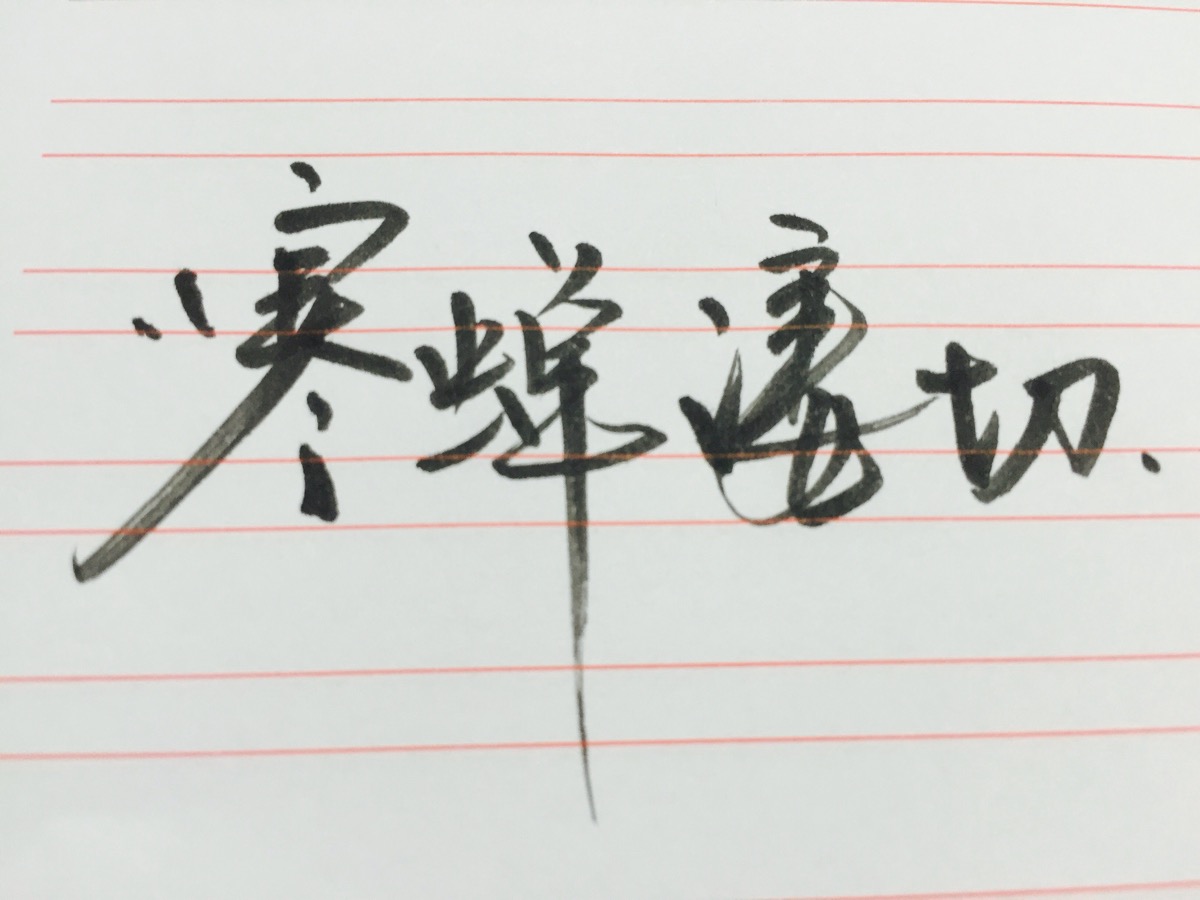 寒蝉凄切.